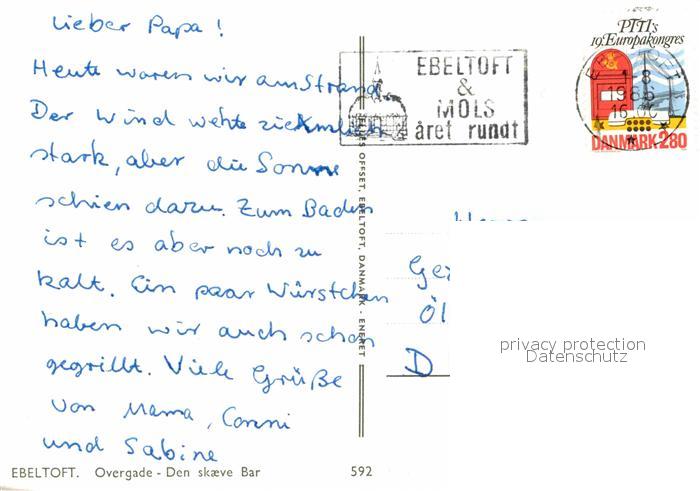 Lieber Papa!
Heute waren wir am Strand.
Der Wind wehte ziemlich
stark, aber die Sonne
schien dazu. Zum Baden
ist es aber noch zu
kalt. Ein paar Würstchen
haben wir auch schon
gegrillt. Viele Grüße
von Mama, Conni
und Sabine
EBELTOFT. Overgade - Den skæve Bar 592
EBELTOFT
&
MOLS
året rundt
PTTI's
19. Europakongres
EBELTOFT
1-8
1986
DANMARK 280
OFFSET, EBELTOFT, DANMARK - ENERET
D
privacy protection
Datenschutz